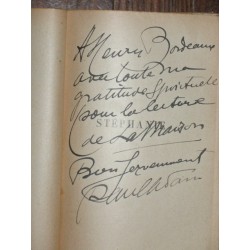 A Henry Bordeaux
avec toute ma
gratitude spirituelle
pour la lecture
STÉPHANIE
de La Maison
Bien fervemment
Paul Adam